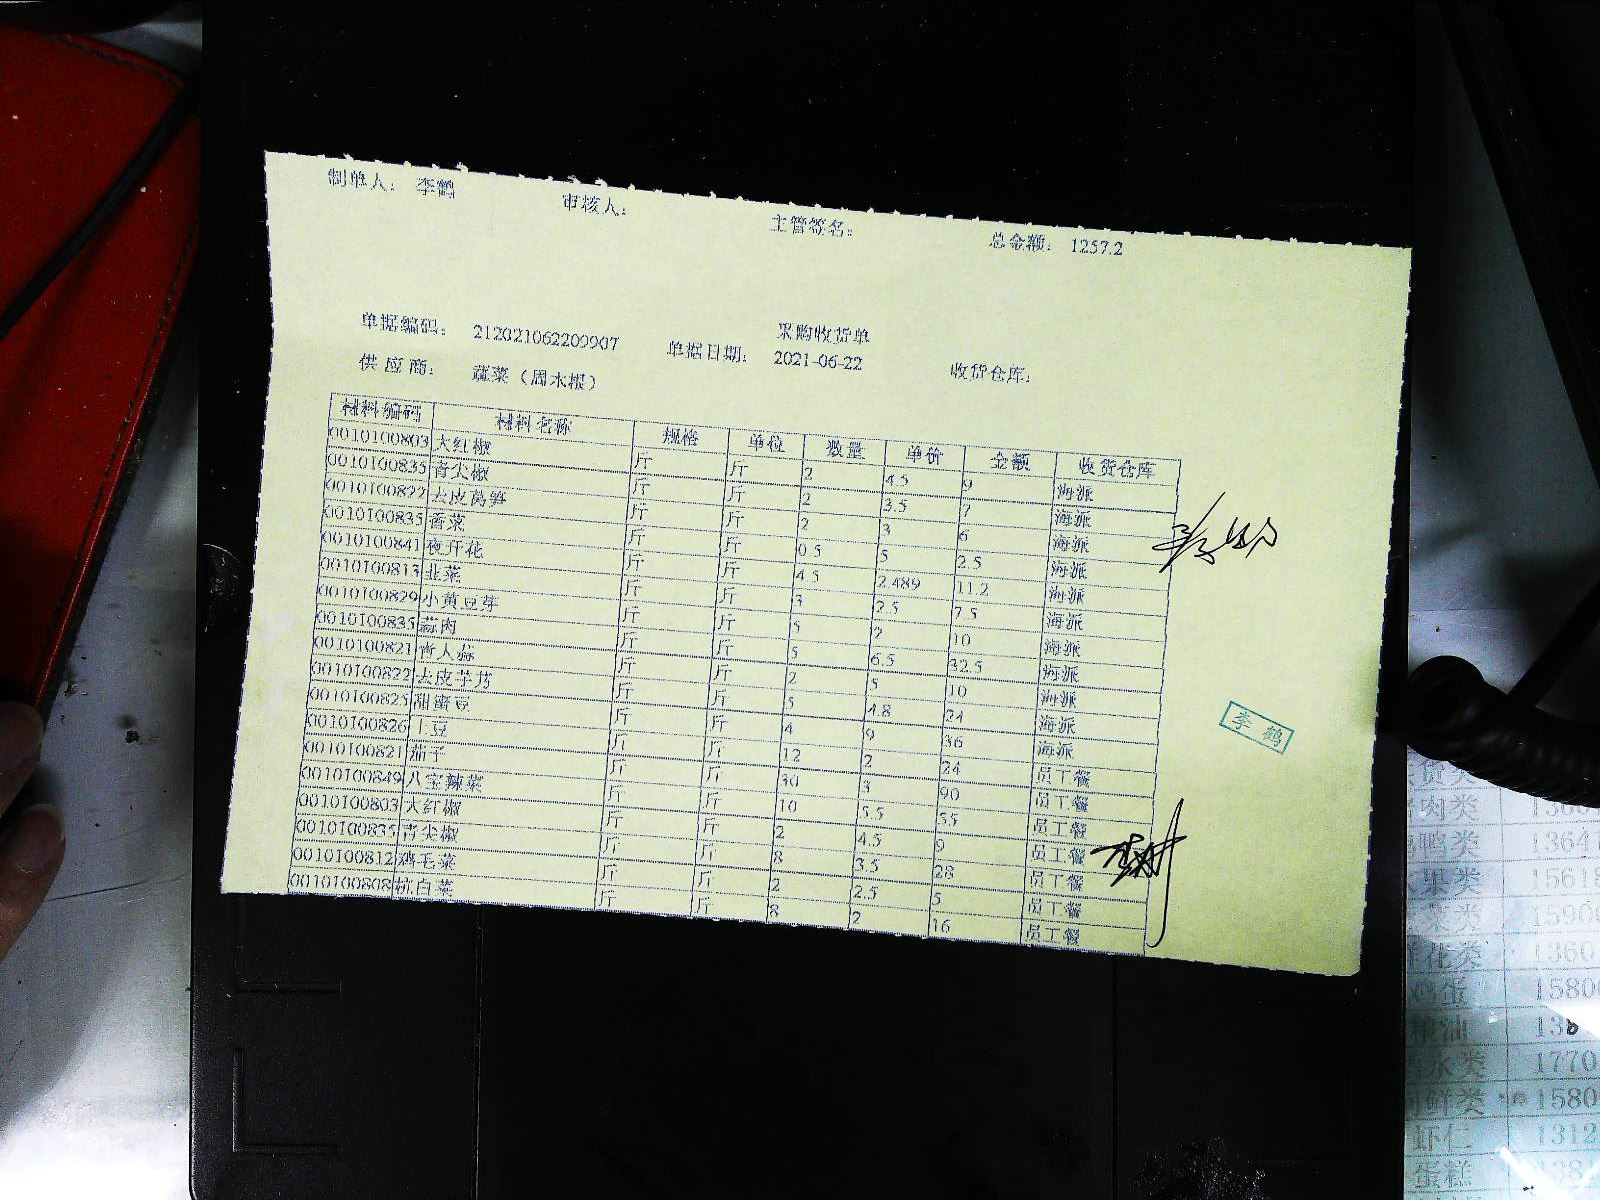 制单人： 李鹤 审核人： 主管签名： 总金额： 1257.2
采购收货单
单据编码： 212021062209907 单据日期： 2021-06-22 收货仓库：
供应商： 蔬菜（周水根）
材料编码 材料名称 规格 单位 数量 单价 金额 收货仓库
0010100803 大红椒 斤 斤 2 4.5 9 海派
0010100835 青尖椒 斤 斤 2 3.5 7 海派
0010100822 去皮莴笋 斤 斤 2 3 6 海派
0010100835 香菜 斤 斤 0.5 5 2.5 海派
0010100841 夜开花 斤 斤 4.5 2.489 11.2 海派
0010100813 韭菜 斤 斤 3 2.5 7.5 海派
0010100829 小黄豆芽 斤 斤 5 2 10 海派
0010100835 蒜肉 斤 斤 5 6.5 32.5 海派
0010100821 青大蒜 斤 斤 2 5 10 海派
0010100822 去皮芋艿 斤 斤 5 4.8 24 海派
0010100825 甜蜜豆 斤 斤 4 9 36 海派
0010100826 土豆 斤 斤 12 2 24 员工餐
0010100821 茄子 斤 斤 30 3 90 员工餐
0010100849 八宝辣菜 斤 斤 10 5.5 55 员工餐
0010100803 大红椒 斤 斤 2 4.5 9 员工餐
0010100835 青尖椒 斤 斤 8 3.5 28 员工餐
0010100812 鸡毛菜 斤 斤 2 2.5 5 员工餐
0010100808 杭白菜 斤 斤 8 2 16 员工餐
李鹤
肉类
鸭类 13641
水果类 15618
菜类 1590
花类 1360
鸡蛋 1580
油 138
水类 1770
鲜类 1580
虾仁 1312
蛋糕 1381